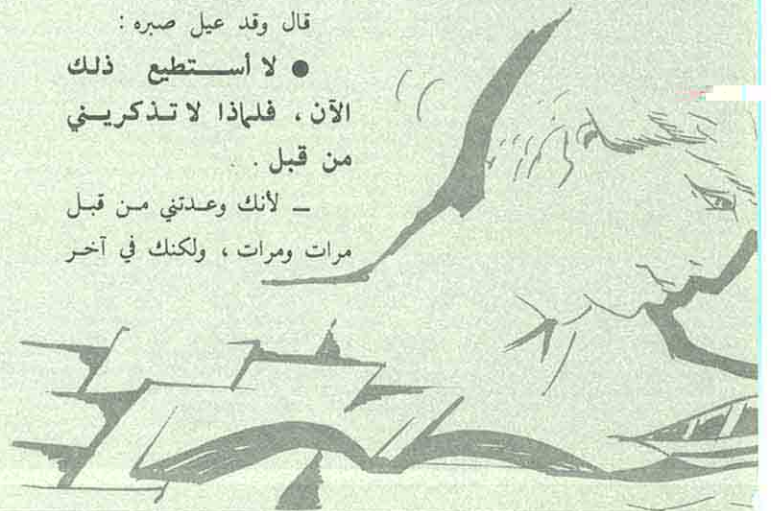 قال وقد عيل صبره :
● لا أستطيع ذلك
الآن ، فلماذا لا تذكريني
من قبل .
ــ لأنك وعدتني من قبل
مرات ومرات ، ولكنك في آخر